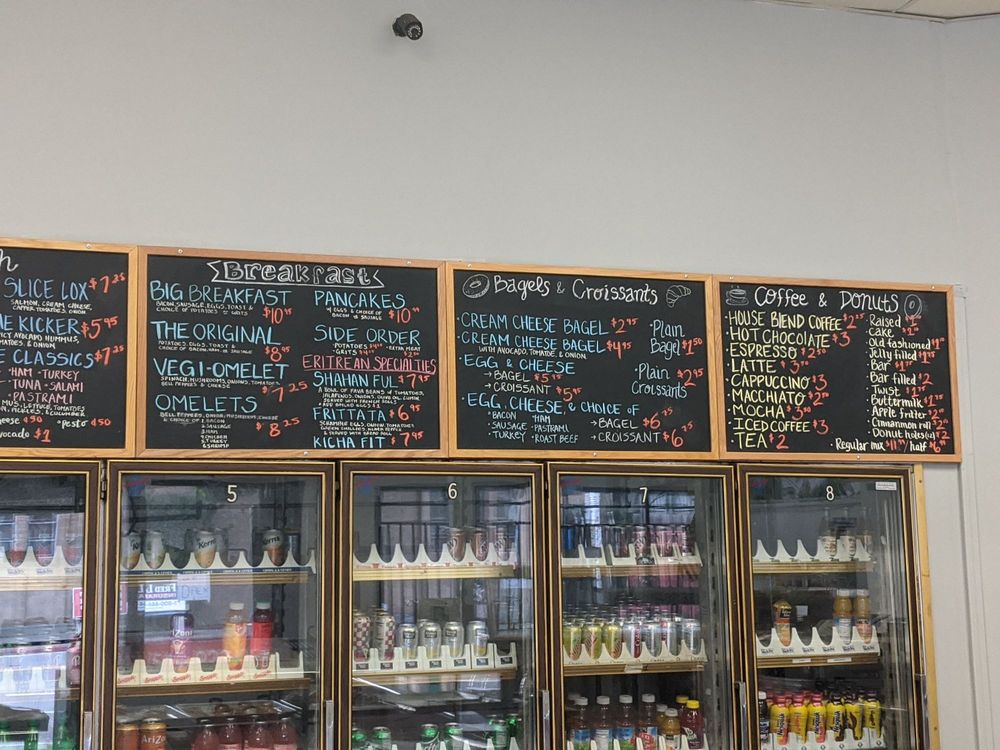 h
SLICE LOX $7.25
SALMON, CREAM CHEESE,
CAPPER, TOMATOES, & ONION
E KICKER $5.95
ICY AVOCADO HUMMUS,
TOMATO, & ONION
E CLASSICS $7.25
- HAM - TURKEY
- TUNA - SALAMI
PASTRAMI
MUSTARD, LETTUCE, TOMATOES
ONION, PICKLES, & CUCUMBER
cheese $.50 *pesto $.50
avocado $1
Breakfast
BIG BREAKFAST $10.95
BACON, SAUSAGE, EGGS, TOAST &
CHOICE OF POTATOES OR GRITS
THE ORIGINAL $8.95
POTATOES, EGGS, TOAST &
CHOICE OF BACON, HAM, OR SAUSAGE
VEGI-OMELET $7.25
SPINACH, MUSHROOMS, ONIONS, TOMATOES,
BELL PEPPERS & CHEESE
OMELETS $8.25
BELL PEPPERS, ONION, MUSHROOMS, CHEESE
& CHOICE OF BACON
SAUSAGE
HAM
CHICKEN
TURKEY
PANCAKES $10.
W/ EGGS & CHOICE OF
BACON OR SAUSAGE
SIDE ORDER
POTATOES
GRITS
EXTRA MEAT
ERITREAN SPECIALTIES
SHAHAN FUL $7.95
A BOWL OF FAVA BEANS W/ TOMATOES,
JALAPENOS, ONIONS, OLIVE OIL, CUMIN
& SERVED WITH FRENCH ROLLS
FRITTATA $6.95
SCRAMBLED EGGS, ONION, TOMATOES
GREEN CHILLIES, BLACK PEPPER
& SERVED WITH BREAD ROLL
KICHA FIT $7.95
Bagels & Croissants
·CREAM CHEESE BAGEL $2.95
·CREAM CHEESE BAGEL $4.95
WITH AVOCADO, TOMATOE, & ONION
·EGG & CHEESE
→ BAGEL $5.75
→ CROISSANT $5.95
·EGG, CHEESE, & CHOICE OF
·BACON ·HAM
·SAUSAGE ·PASTRAMI
·TURKEY ·ROAST BEEF
→ BAGEL $6.25
→ CROISSANT $6.75
·Plain
Bagel $1.50
·Plain
Croissants $2.95
Coffee & Donuts
·HOUSE BLEND COFFEE $2.25
·HOT CHOCOLATE $3
·ESPRESSO $2.50
·LATTE $3.50
·CAPPUCCINO $3
·MACCHIATO $2.
·MOCHA $3.50
·ICED COFFEE $3
·TEA $2
·Raised
·Cake
·Old fashioned $1.
·Jelly filled $1.
·Bar $1.
·Bar filled $2
·Twist $1.
·Buttermilk $1.75
·Apple fritter $2.
·Cinnamon roll $2.
·Donut holes $2
·Regular mix $11. / half $6.
5
6
7
8
Kern's
Kern's
AriZona
Snapple
AriZona